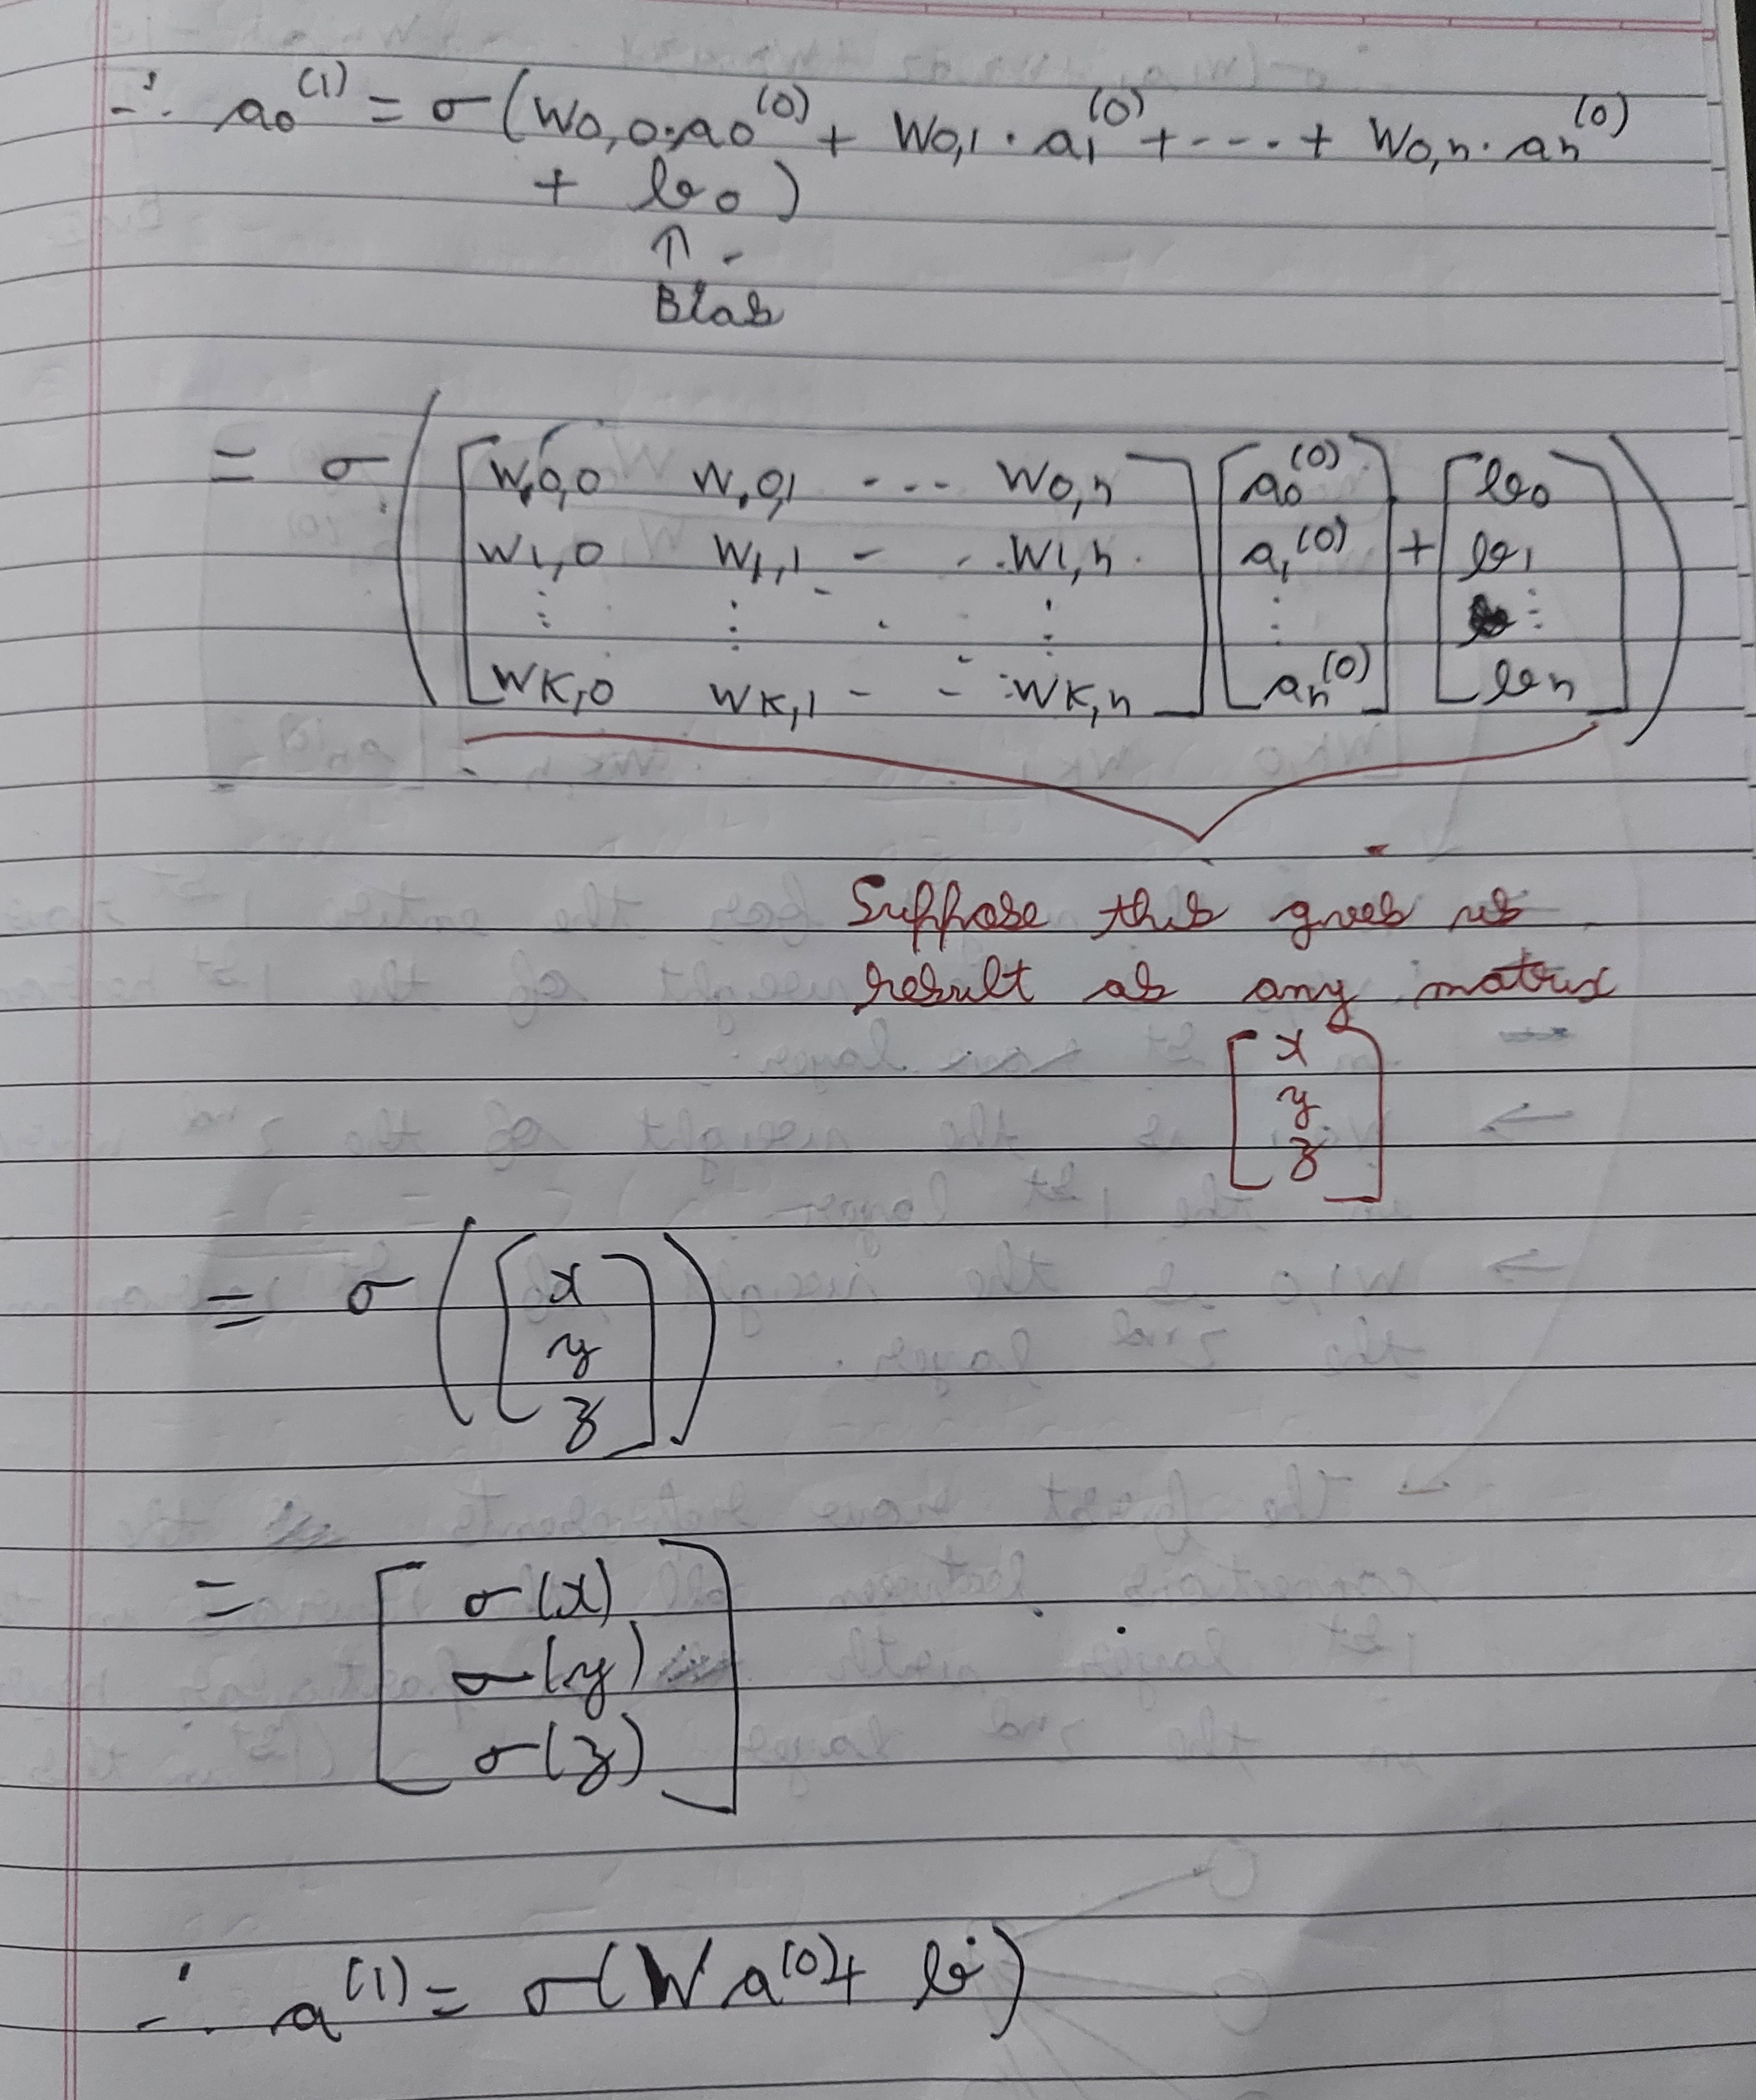 ∴ a₀⁽¹⁾ = σ(W₀,₀·a₀⁽⁰⁾ + W₀,₁·a₁⁽⁰⁾ + ---- + W₀,n·an⁽⁰⁾
+ b₀)
↑
Bias
= σ([W₀,₀ W₀,₁ --- W₀,n] [a₀⁽⁰⁾] [b₀]
[W₁,₀ W₁,₁ - - W₁,n] [a₁⁽⁰⁾] + [b₁]
[⋮ ⋮ ⋱ ⋮] [⋮] [⋮]
[WK,₀ WK,₁ - - WK,n] [an⁽⁰⁾] [bn])
Suppose this gives us
result as any matrix
[x]
[y]
[z]
= σ([x]
[y]
[z])
= [σ(x)]
[σ(y)]
[σ(z)]
∴ a⁽¹⁾ = σ(W a⁽⁰⁾ + b)